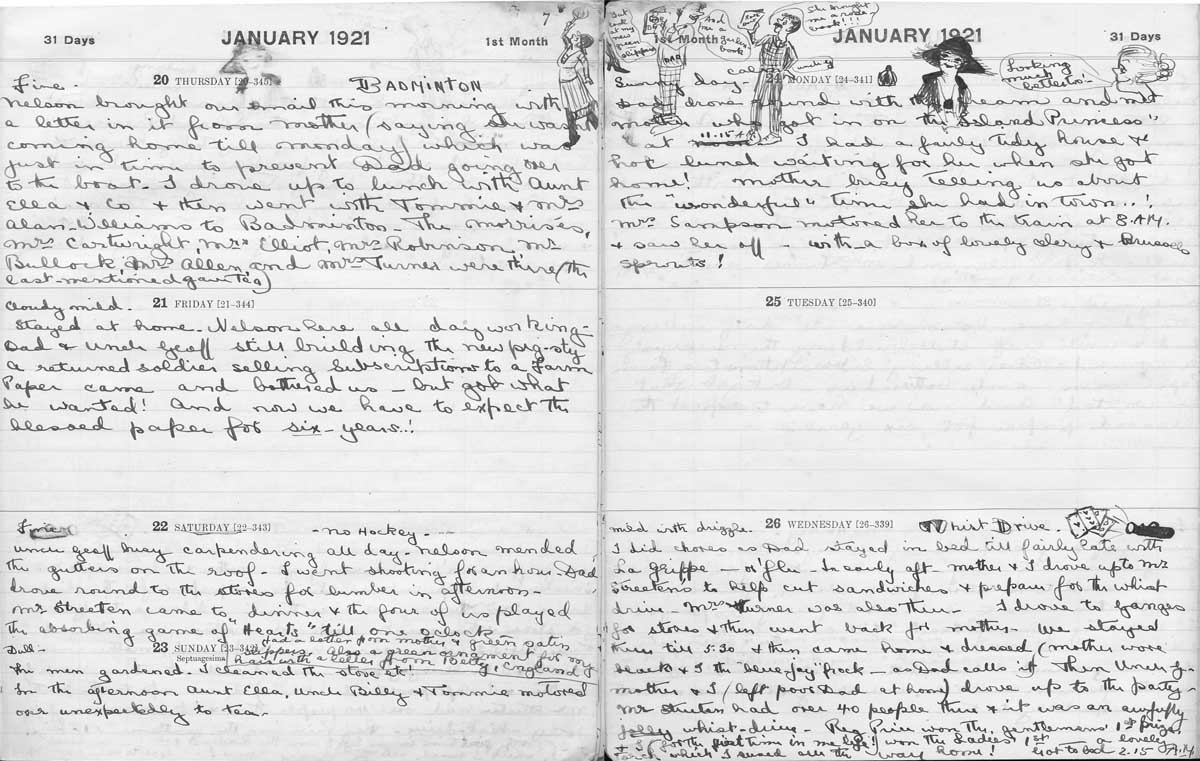 7
31 Days
JANUARY 1921
1st Month
20 THURSDAY [20–345]
BADMINTON
Fine.
Nelson brought our mail this morning with
a letter in it from mother (saying she was
coming home till monday) which was
just in time to prevent Dad going over
to the boat. I drove up to lunch with Aunt
Ella & Co & then went with Tommie & Mrs
Alan-Williams to Badminton - The Morris's,
Mrs Cartwright, Mrs Elliot, Mrs Robinson, Mr
Bullock, Mrs Allen, and Mrs Turner were there (the
last-mentioned gave tea)
21 FRIDAY [21–344]
Cloudy mild.
Stayed at home. Nelson here all day working -
Dad & Uncle Geoff still building the new pig-sty
A returned soldier selling subscriptions to a Farm
Paper came and bothered us - but got what
he wanted! And now we have to expect the
blessed paper for six - years..!
22 SATURDAY [22–343]
- No Hockey -
Fine
Uncle Geoff busy carpendering all day - Nelson mended
the gutters on the roof - I went shooting for an hour. Dad
drove round to the stores for lumber in afternoon -
Mr Streeten came to dinner & the four of us played
the absorbing game of "Hearts" till one oclock
23 SUNDAY [23–342]
Septuagesima
Had a letter from mother & green satin
slippers. Also a green ornament for my
hair with a letter from Betty, England
Dull -
The men gardened. I cleaned the stove etc.
In the afternoon Aunt Ella, Uncle Billy & Tommie motored
over unexpectedly to tea -
But look at my new green slippers
DAD
And for a garden book
She brought me a rose book!!!
1st Month
JANUARY 1921
31 Days
Looking much better to!
24 MONDAY [24–341]
Sunny day cold
Dad drove round with the cream and met
mother who got in on the "Island Princess"
at 11.15 A I had a fairly tidy house &
hot lunch waiting for her when she got
home! Mother busy telling us about
the "wonderful" time she had in town..!
Mrs Sampson motored her to the train at 8 A.M.
& saw her off - with a box of lovely celery & Brussels
sprouts!
25 TUESDAY [25–340]
26 WEDNESDAY [26–339]
Whist Drive.
Mild with drizzle.
I did chores as Dad stayed in bed till fairly late with
La Grippe - or 'flu - In early aft mother & I drove up to Mr
Streetens to help cut sandwiches & prepare for the whist
drive - Mrs Turner was also there - I drove to Ganges
for stores & then went back for mother. We stayed
there till 5.30 & then came home & dressed (mother wore
& I the "blue-jay" frock - as Dad calls it. Then Uncle G
mother & I (left poor Dad at home) drove up to the party -
Mr Streeten had over 40 people there & it was an awfully
jolly whist-drive - Reg Price won the gentlemans 1st prize
& I (for the first time in me life!) won the ladies 1st a lovely
torch which I used all the way home! Got to bed 2.15 A.M.